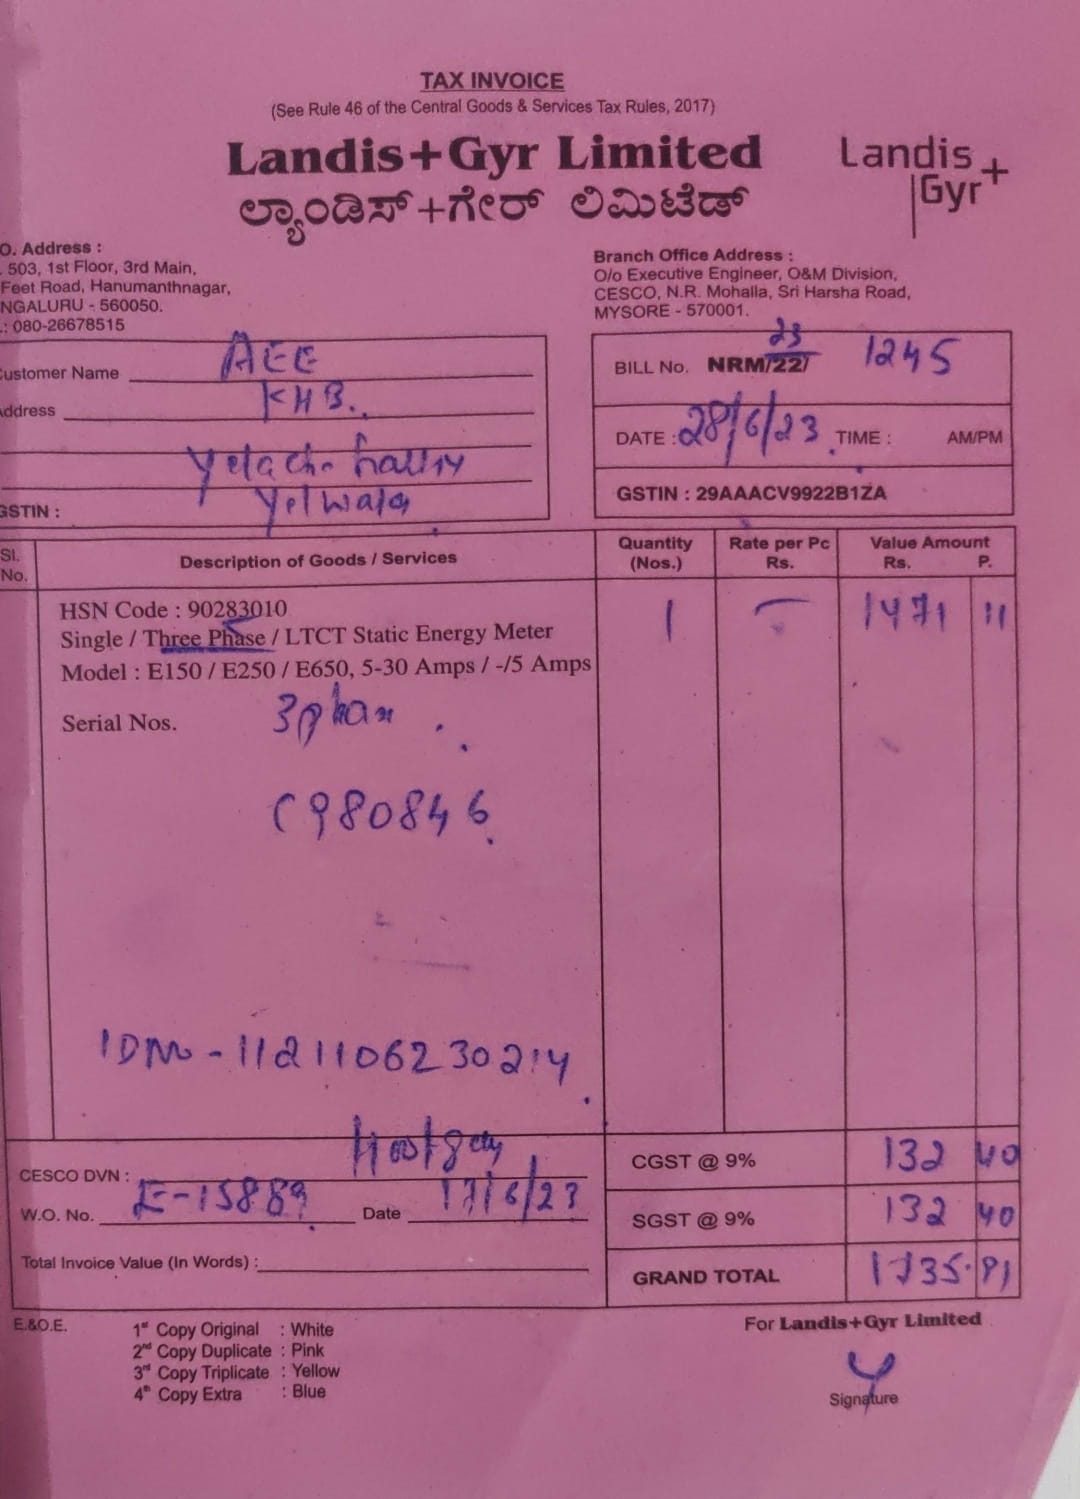 TAX INVOICE
(See Rule 46 of the Central Goods & Services Tax Rules, 2017)
Landis+Gyr Limited
ಲ್ಯಾಂಡಿಸ್+ಗೇರ್ ಲಿಮಿಟೆಡ್
Landis
Gyr+
O. Address :
503, 1st Floor, 3rd Main,
Feet Road, Hanumanthnagar,
NGALURU - 560050.
.: 080-26678515
Branch Office Address :
O/o Executive Engineer, O&M Division,
CESCO, N.R. Mohalla, Sri Harsha Road,
MYSORE - 570001.
ustomer Name AEE
ddress KHB.
Yelwala
GSTIN :
23
BILL No. NRM/22/ 1245
DATE : 28/6/23 TIME : AM/PM
GSTIN : 29AAACV9922B1ZA
Sl. No. Description of Goods / Services Quantity (Nos.) Rate per Pc Rs. Value Amount Rs. P.
HSN Code : 90283010 1 - 1471 11
Single / Three Phase / LTCT Static Energy Meter
Model : E150 / E250 / E650, 5-30 Amps / -/5 Amps
Serial Nos. 3 phase
C980846
IDM - 1121106230214
CESCO DVN :
W.O. No. E-15889 Date 17/6/23
Total Invoice Value (In Words) :
CGST @ 9% 132 40
SGST @ 9% 132 40
GRAND TOTAL 1735.91
E.&O.E.
1st Copy Original : White
2nd Copy Duplicate : Pink
3rd Copy Triplicate : Yellow
4th Copy Extra : Blue
For Landis+Gyr Limited
Signature